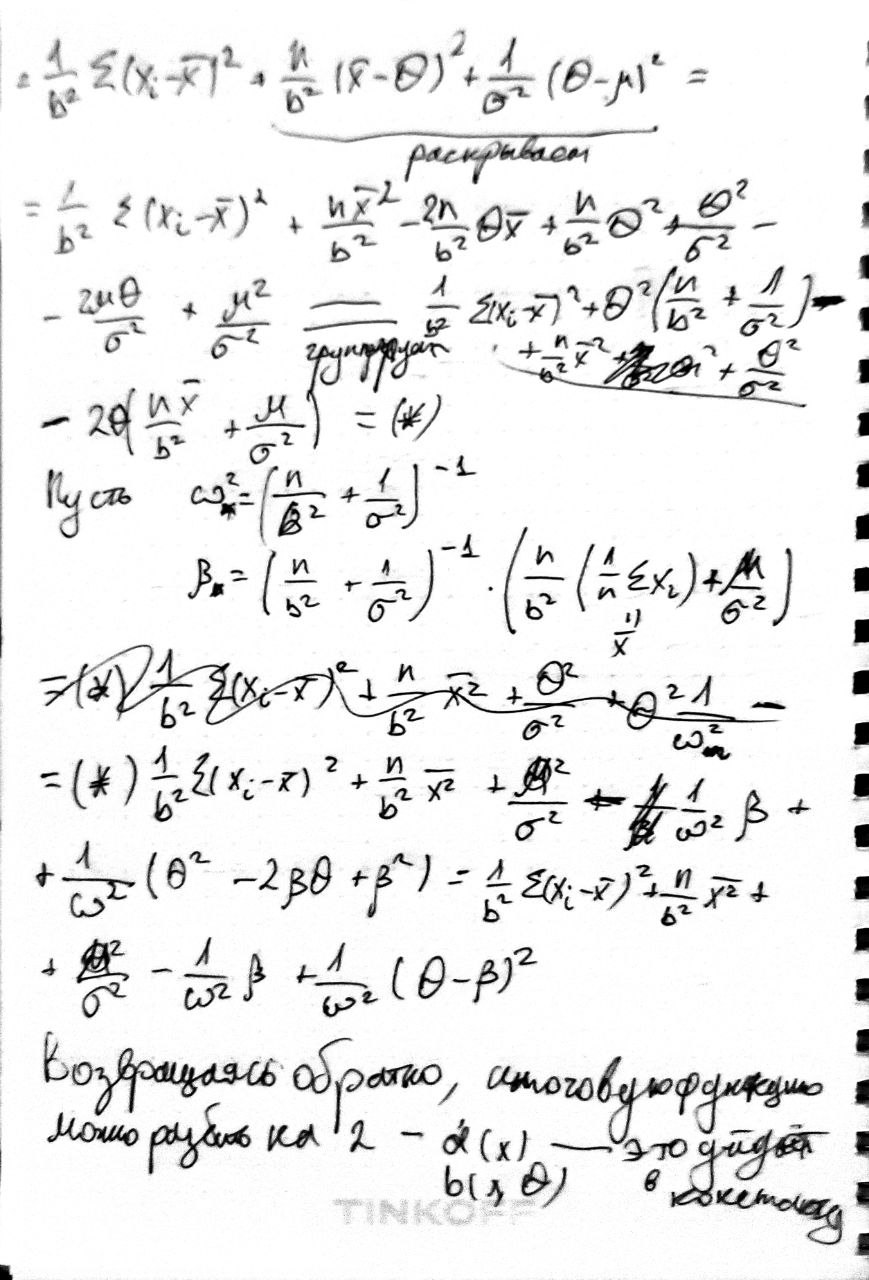 = 1/b² Σ(xᵢ-x̄)² + n/b² (x̄-θ)² + 1/σ² (θ-μ)² =
раскрываем
= 1/b² Σ(xᵢ-x̄)² + nx̄²/b² - 2n/b² θx̄ + n/b² θ² + θ²/σ² -
- 2μθ/σ² + μ²/σ² = 1/b² Σ(xᵢ-x̄)² + θ²(n/b² + 1/σ²) -
+ n/b² x̄² + θ²/σ²
- 2θ(nx̄/b² + μ/σ²) = (*)
Пусть ω² = (n/b² + 1/σ²)⁻¹
β = (n/b² + 1/σ²)⁻¹ · (n/b² (1/n Σxᵢ) + μ/σ²)
x̄
= (*) 1/b² Σ(xᵢ-x̄)² + n/b² x̄² + θ²/σ² + θ² 1/ω² -
= (*) 1/b² Σ(xᵢ-x̄)² + n/b² x̄² + μ²/σ² - 1/ω² β +
+ 1/ω² (θ² - 2βθ + β²) = 1/b² Σ(xᵢ-x̄)² + n/b² x̄² +
+ μ²/σ² - 1/ω² β + 1/ω² (θ-β)²
Возвращаясь обратно, итоговую функцию
можно разбить на 2 - a(x) — это уйдёт
b( , θ) в константу
TINKOFF